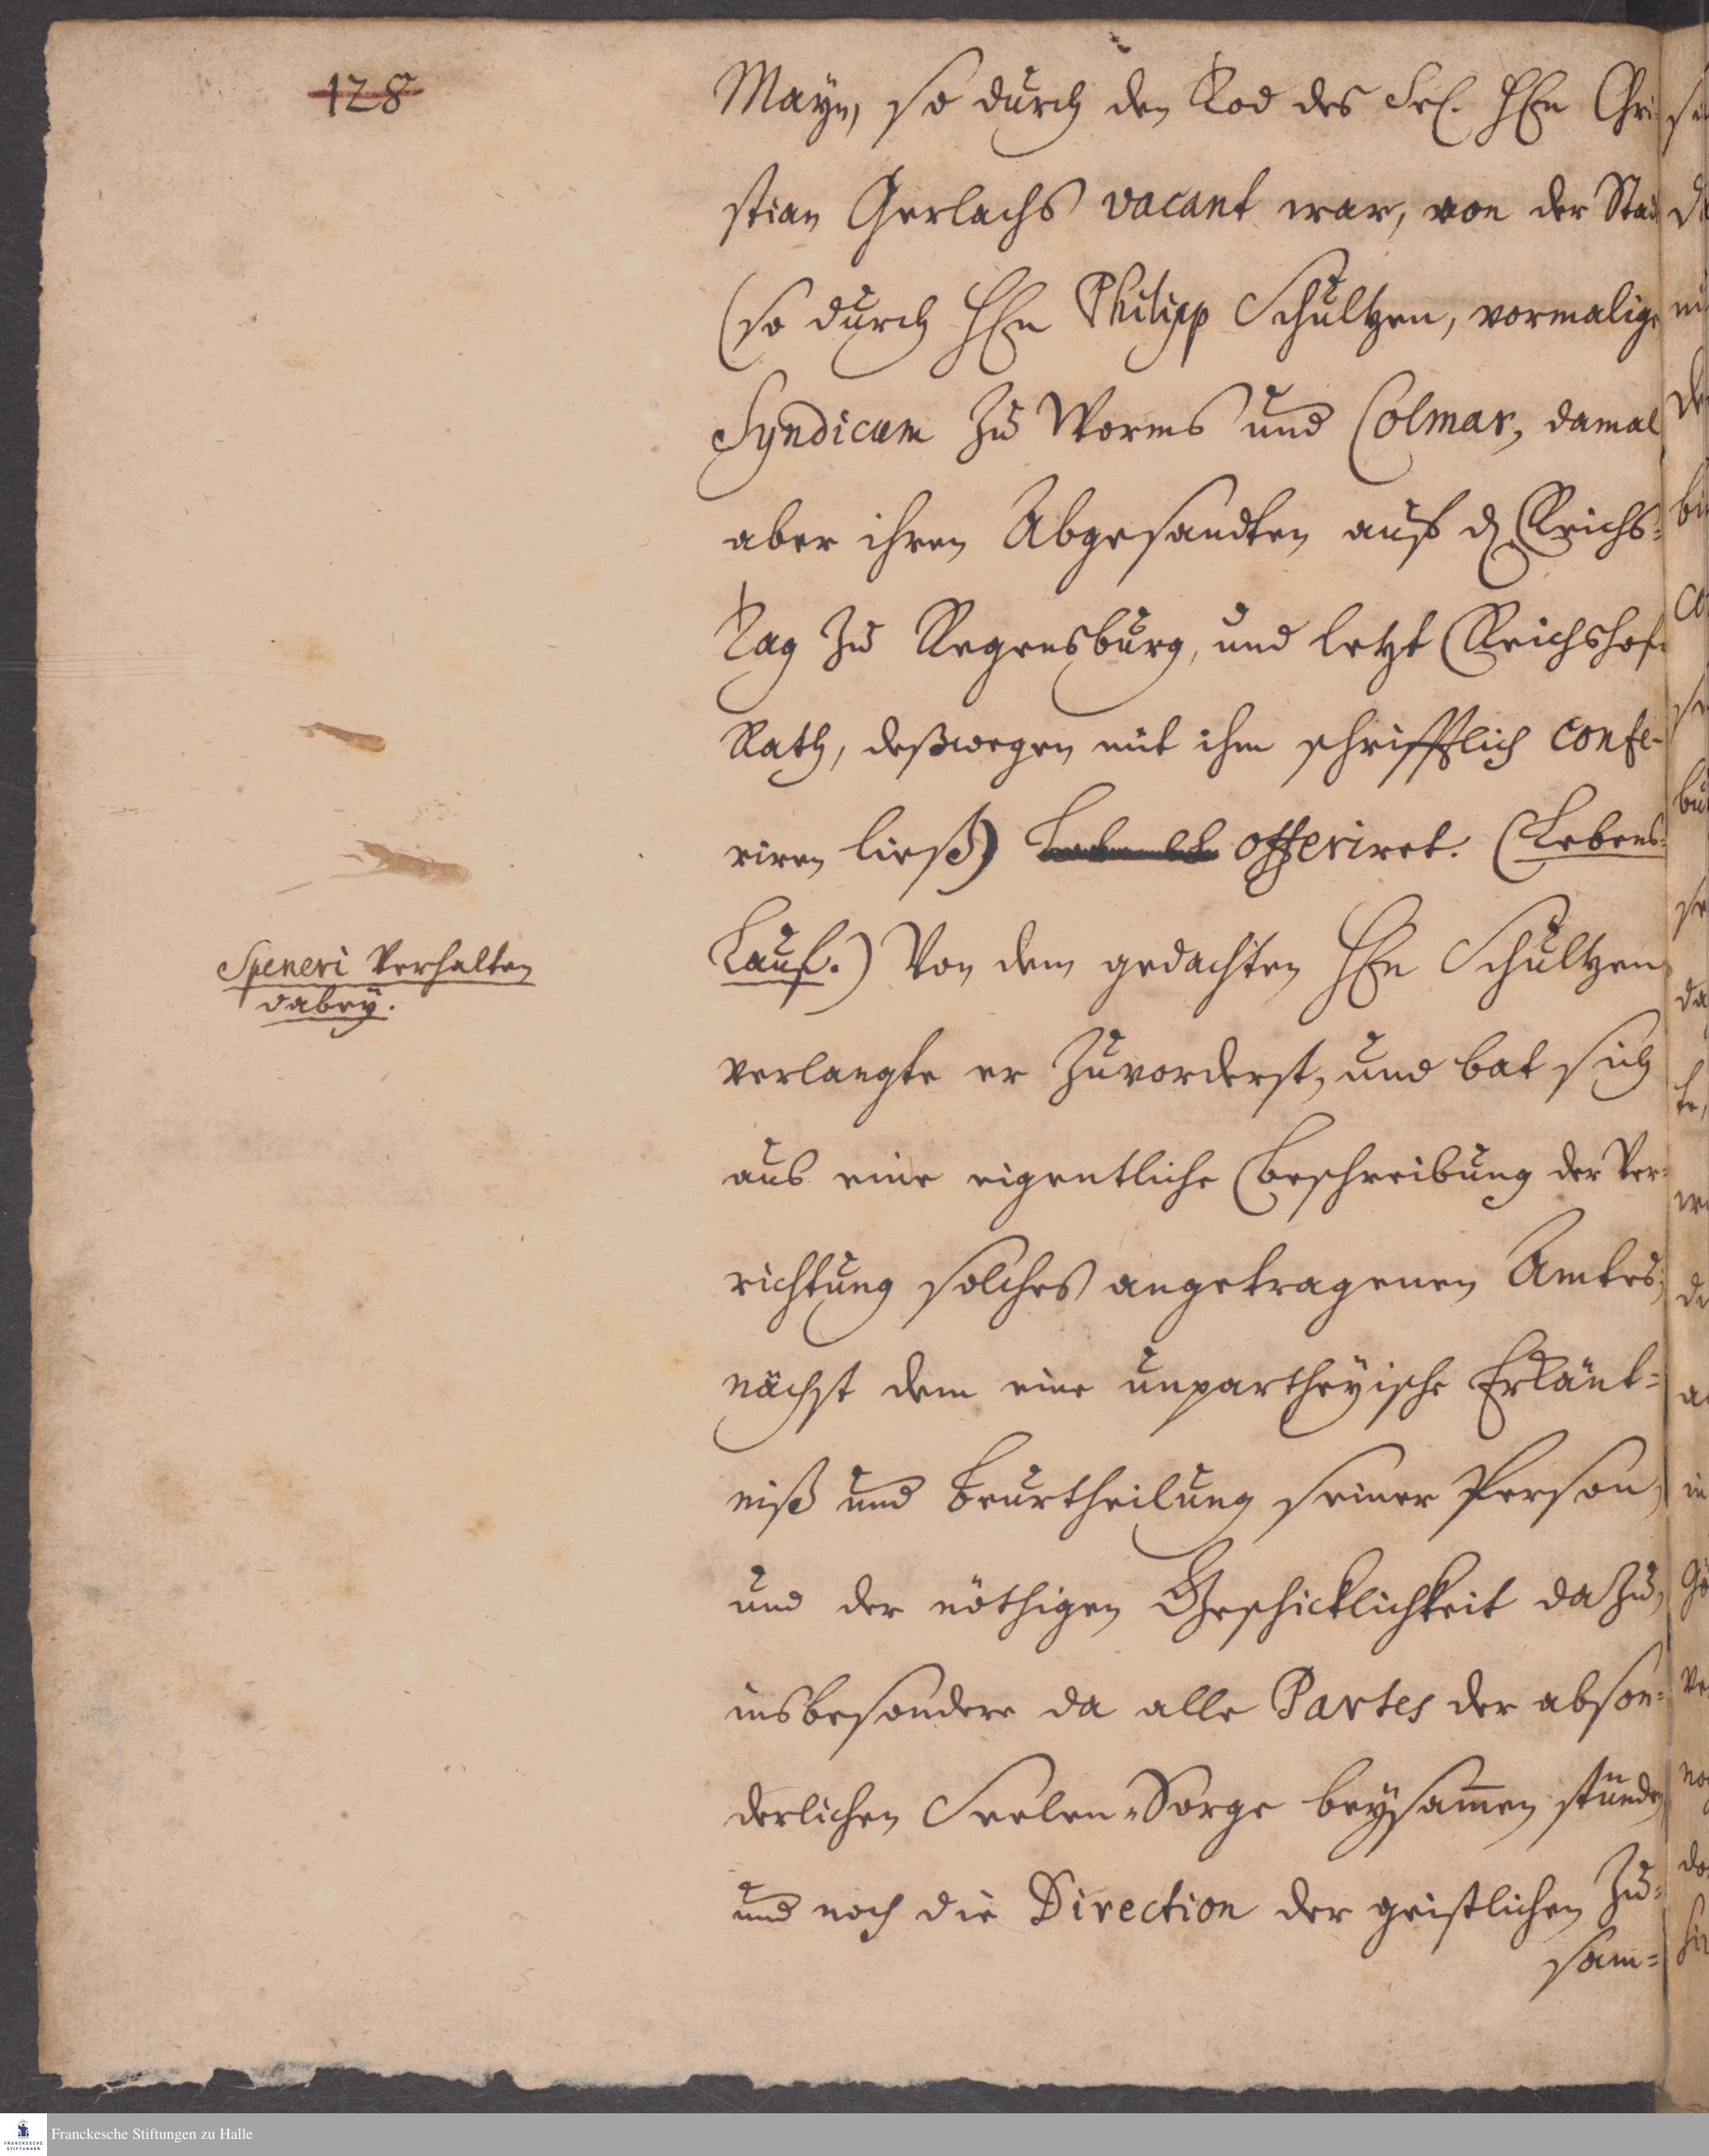 128
Mayn, so durch den Tod des Sel. HEn Chri-
stian Gerlachs vacant war, von der Stad
(so durch HEn Philipp Schultzen, vormalige
Syndicum zu Worms und Colmar, damal
aber ihren Abgesandten auf d. Reichs-
Tag zu Regensburg, und letzt Reichshof-
Rath, deßwegen mit ihm schrifftlich confe-
riren ließ) offeriret. (Lebens-
Lauf.) Von dem gedachten HEn Schultzen
Speneri Verhalten
dabey.
verlangte er zuvorderst, und bat sich
aus eine eigentliche Beschreibung der Ver-
richtung solches angetragenen Amtes,
nächst dem eine unpartheyische Erkänt-
niß und Beurtheilung seiner Person,
und der nöthigen Geschicklichkeit dazu,
insbesondere da alle Partes der abson-
derlichen Seelen-Sorge beysam̄en stünden
und noch die Direction der geistlichen Zu-
sam-
Franckesche Stiftungen zu Halle
FRANCKESCHE
STIFTUNGEN